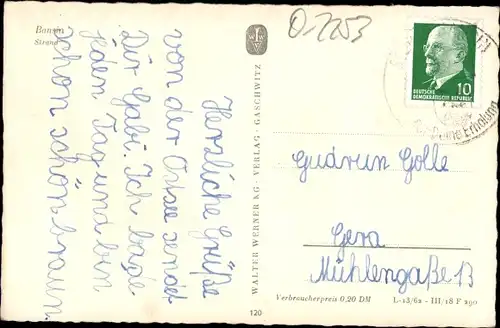 Bansin
Strand
O-2253
Herzliche Grüße
von der Ostsee sendet
Dir Gabi. Ich bade
jeden Tag und bin
schon schön braun.
WALTER WERNER KG · VERLAG · GASCHWITZ
10
DEUTSCHE
DEMOKRATISCHE REPUBLIK
Erholung
Gudrun Golle
Gera
Mühlengaße 13
Verbraucherpreis 0,20 DM
L-13/62 - III/18 F 290
120